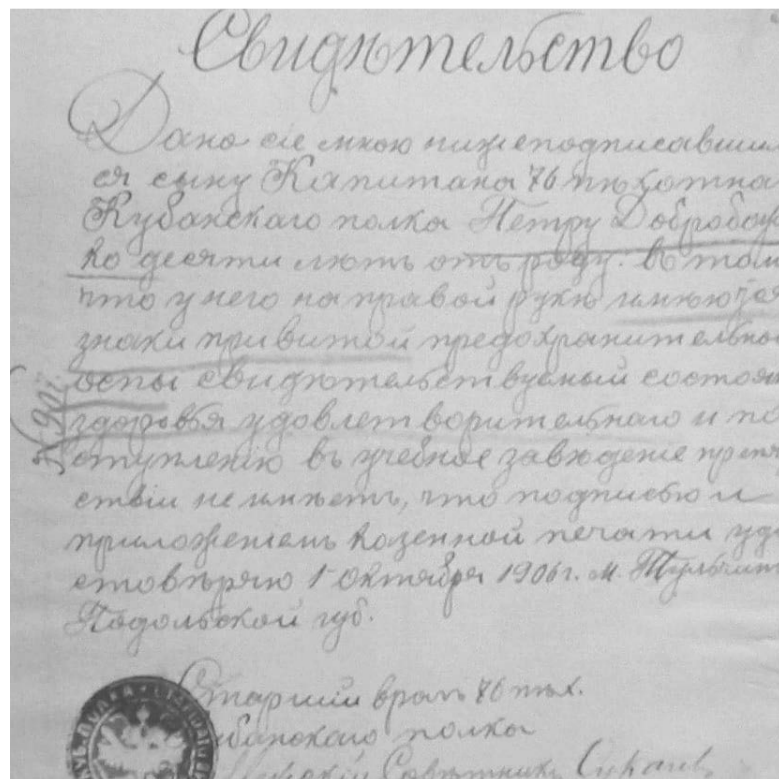 Свидѣтельство
Дано сіе мною нижеподписавшим
ся сыну Капитана 76 пѣхотна
Кубанскаго полка Петру Добробоу
ко десяти лѣтъ отъ роду: въ том
что у него на правой рукѣ имѣются
знаки привитой предохранительной
оспы свидѣтельствуемый состоян
здоровья удовлетворительнаго и по
ступленію въ учебное заведеніе препя
ствій не имѣетъ, что подписью и
приложеніемъ казенной печати удо
стовѣряю 1 Октября 1906 г. м. Тульчинъ
Подольской губ.
Старшій врачъ 76 пѣх.
Кубанскаго полка
Совѣтникъ